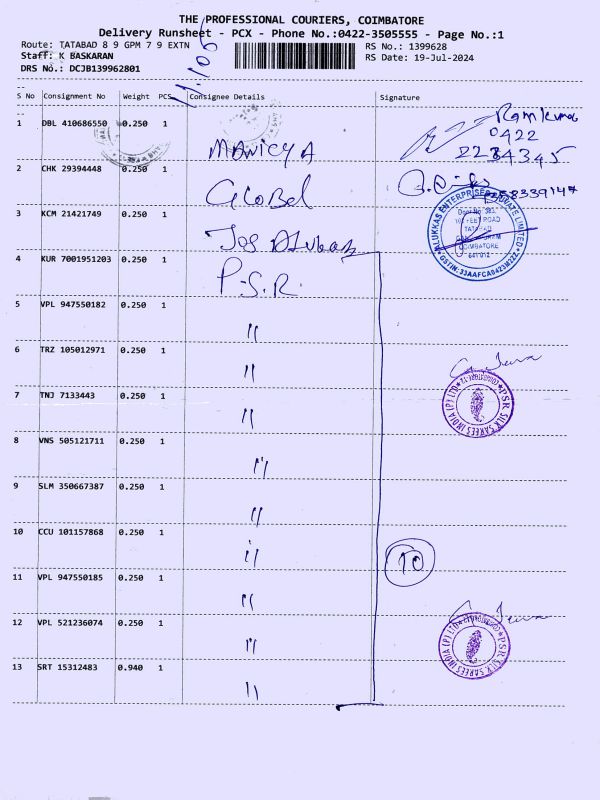 THE PROFESSIONAL COURIERS, COIMBATORE
Delivery Runsheet - PCX - Phone No.:0422-3505555 - Page No.:1
Route: TATABAD 8 9 GPM 7 9 EXTN
RS No.: 1399628
Staff: K BASKARAN
RS Date: 19-Jul-2024
DRS No.: DCJB139962801
S No Consignment No Weight PCS Consignee Details Signature
1 DBL 410686550 0.250 1
0422
2 CHK 29394448 0.250 1 Global
3 KCM 21421749 0.250 1
ALUKKAS ENTERPRISES PRIVATE LIMITED
COIMBATORE
641 012
4 KUR 7001951203 0.250 1 P.S.R.
5 VPL 947550182 0.250 1 "
6 TRZ 105012971 0.250 1 "
7 TNJ 7133443 0.250 1 "
PSR SILK SAREES INDIA (P) LTD
8 VNS 505121711 0.250 1 "
9 SLM 350667387 0.250 1 "
10 CCU 101157868 0.250 1 "
10
11 VPL 947550185 0.250 1 "
12 VPL 521236074 0.250 1 "
PSR SILK SAREES INDIA (P) LTD
13 SRT 15312483 0.940 1 "